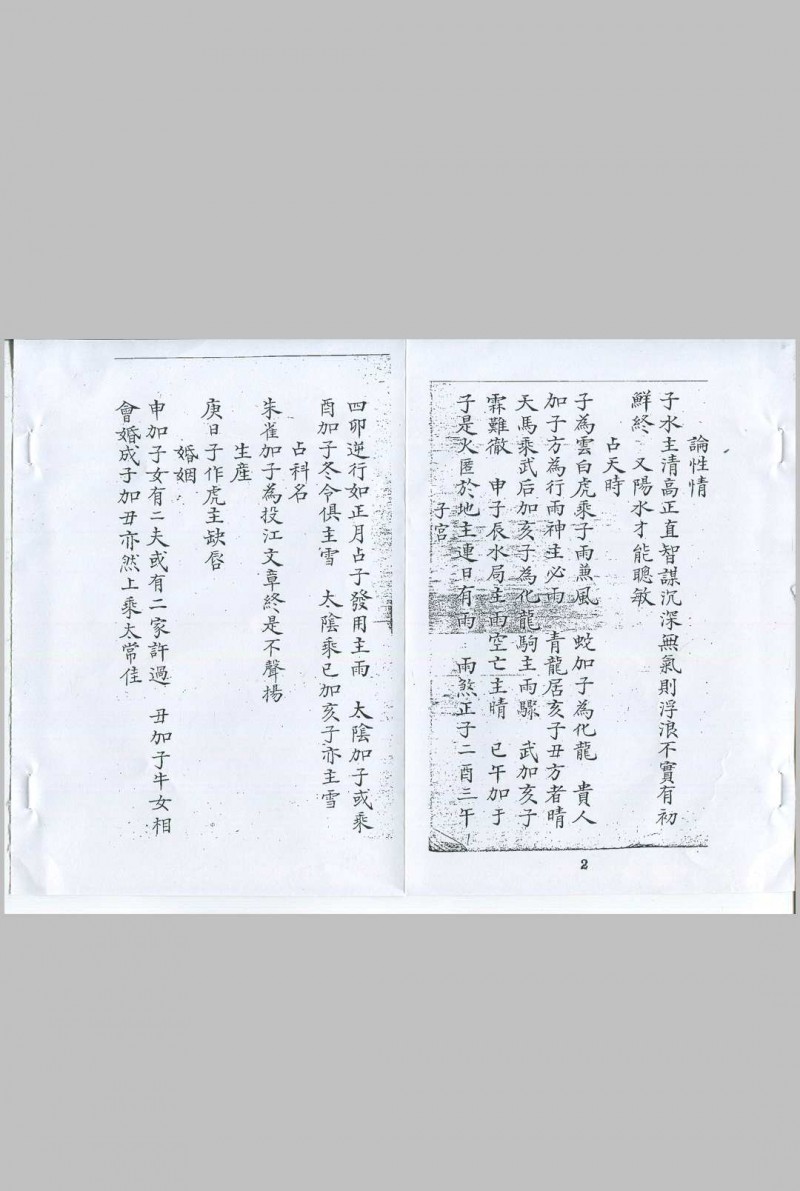 論性情
子水主清高正直智謀沉深無氣則浮浪不實有初
鮮終　又陽水才能聰敏
占天時
子為雲白虎乘子雨兼風　蛟加子為化龍　貴人
加子方為行雨神主必雨　青龍居亥子丑方者晴
天馬乘武后加亥子為化龍駒主雨驟　武加亥子
霖難徹　申子辰水局主雨空亡主晴　巳午加于
子是火匿於地主連日有雨　雨煞正子二酉三午
子宮
2
四卯逆行如正月占子發用主雨　太陰加子或乘
酉加子冬令俱主雪　太陰乘巳加亥子亦主雪
占科名
朱雀加子為投江文章終是不聲揚
生産
庚日子作虎主缺唇
婚姻
申加子女有二夫或有二家許過　丑加子牛女相
會婚成子加丑亦然上乘太常佳